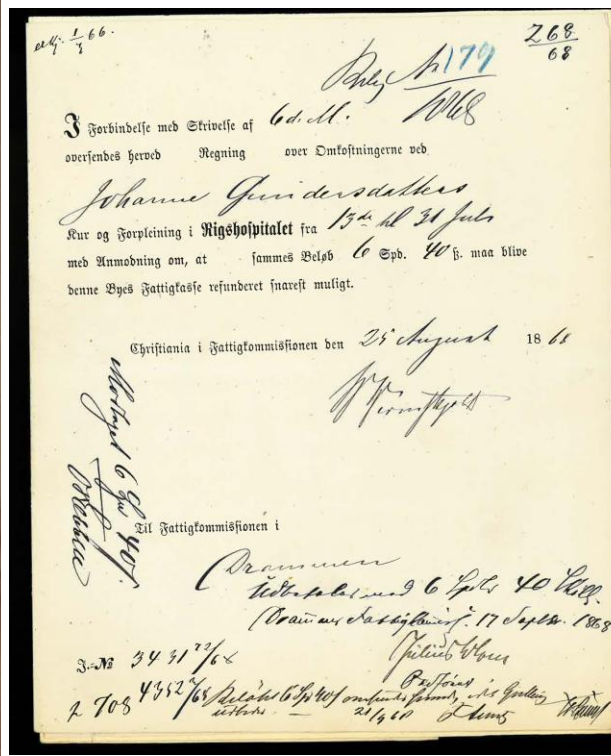 268
68
No 179
1868
I Forbindelse med Skrivelse af 6 d. M.
oversendes herved Regning over Omkostningerne ved
Johanne Gundersdatters
Kur og Forpleining i Rigshospitalet fra 13de til 31 Juli
med Anmodning om, at sammes Beløb 6 Spd. 40 ß. maa blive
denne Byes Fattigkasse refunderet snarest muligt.
Christiania i Fattigkommissionen den 25 August 1868
Modtaget 6 Spd 40 ß.
Til Fattigkommissionen i
Drammen
Udbetales med 6 Spdlr 40 Skill.
Drammens Fattigkomm. 17 Septbr. 1868
Julius
J.-No 3431 22/8 68
2 708 4352 Beløbet 6 Spd 40 ß
21/9 68